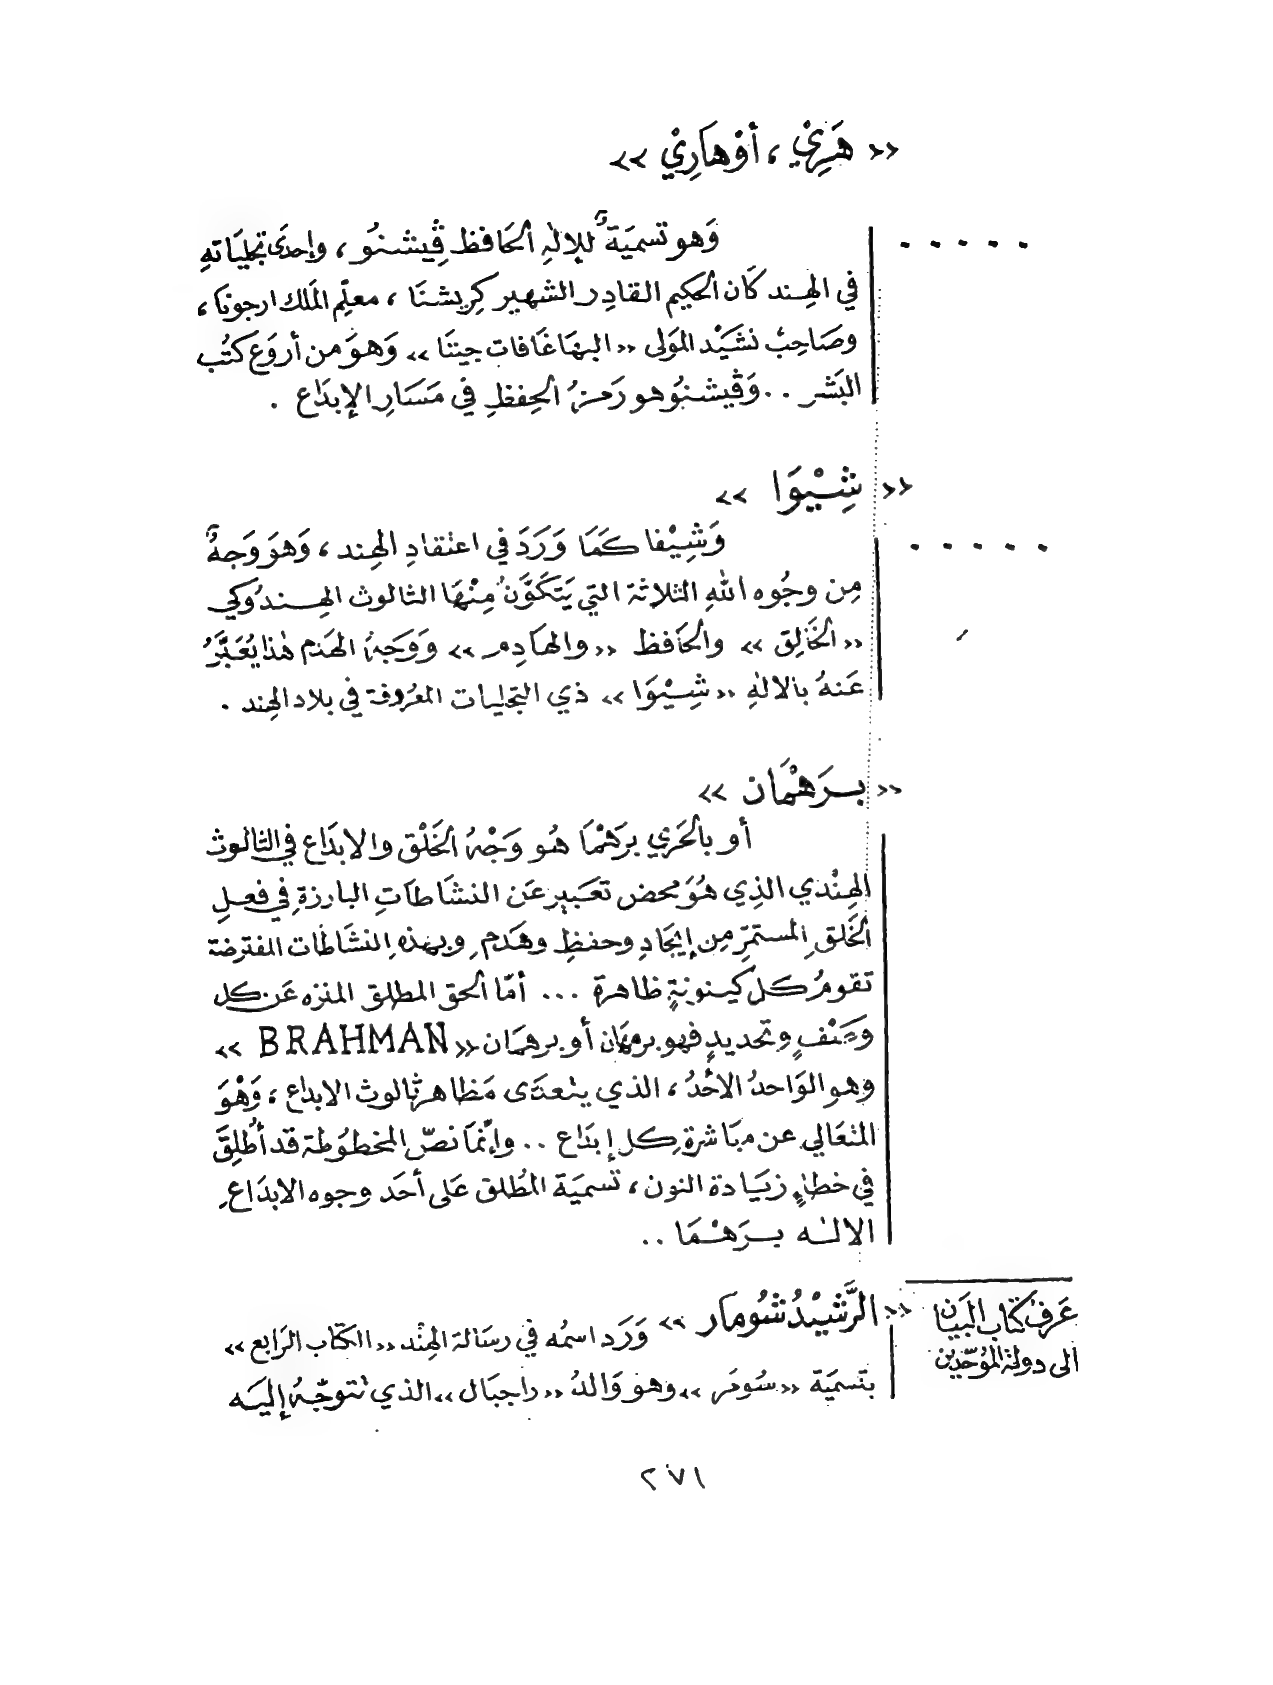 « هَرِيْ ، أوْ هَارِيْ »
.....
وَهو تسميَةٌ للإلٰهِ الحَافظ ڤِيشنُو ، وإحدَى تجليَاتهِ
في الهِند كَان الحكيم القادِر الشهير كِريشنَا ، معلِّم المَلك ارجونَا ،
وصَاحِبُ نشَيْد المَولى « البهَاغَافات جيتنَا » وَهوَ من أروَع كتُب
البَشر .. وَڤيشنُو هو رَمزُ الحِفظِ في مَسَارِ الإبدَاع .
« شِيْوَا »
.....
وَشِيْفا كمَا وَرَدَ في اعتقادِ الهِند ، وَهوَ وَجهٌ
مِن وجُوه اللهِ الثلاثة التي يَتكَوَّنُ مِنْهَا الثالوث الهِندُوكي
« الخَالِق » والحَافظ « والهَادِم » وَوَجهُ الهَدم هٰذا يُعَبَّرُ
عَنهُ بالالٰهِ « شِيْوَا » ذي التجليات المعرُوفة في بلاد الهِند .
« بـرَهْمَان »
أو بالحَري برَهْمَا هُو وَجْهُ الخَلْق والابدَاع في الثالوث
الهِنْدي الذِي هُوَ محض تعَبير عَن النشَاطاتِ البارزةِ في فعلِ
الخَلقِ المستمرِّ مِن إيجَادٍ وحفظٍ وهَدمٍ وبهذهِ النشَاطات المفترضة
تقومُ كل كينونةٍ ظاهرة ... أمّا الحق المطلق المنزه عَن كل
وصْفٍ وتحديدٍ فهو برمهَان أو برهمَان « BRAHMAN »
وهو الوَاحدُ الأحَدُ ، الذي يتعدَى مَظاهر ثالوث الابداع ، وَهْوَ
المتعَالي عن مبَاشرةِ كل إبدَاع .. وإنّمَا نصّ المخطوُطة قد أُطلِقَ
في خطإٍ زيَادة النون ، تسميَة المُطلق عَلى أحَد وجوه الابدَاعِ
الالٰه بـرَهْـمَا ..
« الرَّشيْدُ شُومَار » وَرَد اسمُه في رسَالة الهِنْد « الكتَاب الرَابع »
بتسميَة « سُومَر » وهوَ وَالدُ « راجبَال » الذي نتوجّهُ إليَه
عَرفَ كتَاب البَيَان
الى دولة المُوُحّدين
٢٧١